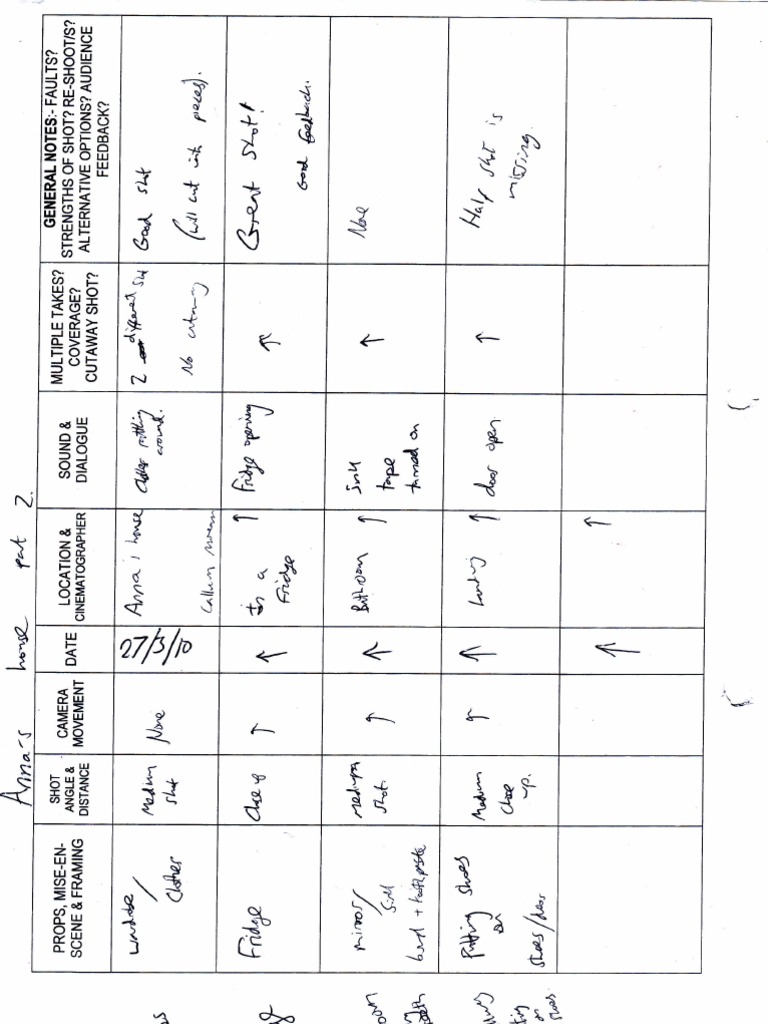 Anna's house part 2.
PROPS, MISE-EN-
SCENE & FRAMING
SHOT
ANGLE &
DISTANCE
CAMERA
MOVEMENT
DATE
LOCATION &
CINEMATOGRAPHER
SOUND &
DIALOGUE
MULTIPLE TAKES?
COVERAGE?
CUTAWAY SHOT?
GENERAL NOTES:- FAULTS?
STRENGTHS OF SHOT? RE-SHOOT/S?
ALTERNATIVE OPTIONS? AUDIENCE
FEEDBACK?
/
Clothes
Medium
shot
None
27/3/10
Anna's house
Callum
putting
around.
2 different
No cutaway
Good shot
(will cut into pieces).
Fridge
Close up
↑
↑
In a
Fridge
↑
Fridge opening
↑
Great shot!
Good feedback.
mirror/
sink
+ toothpaste
medium
shot.
↑
↑
Bathroom
↑
sink
tape
turned on
↑
None
Putting shoes
on
shoes/
Medium
close
up.
↑
↑
Landing
↑
door open
↑
Half shot is
missing.
↑
↑